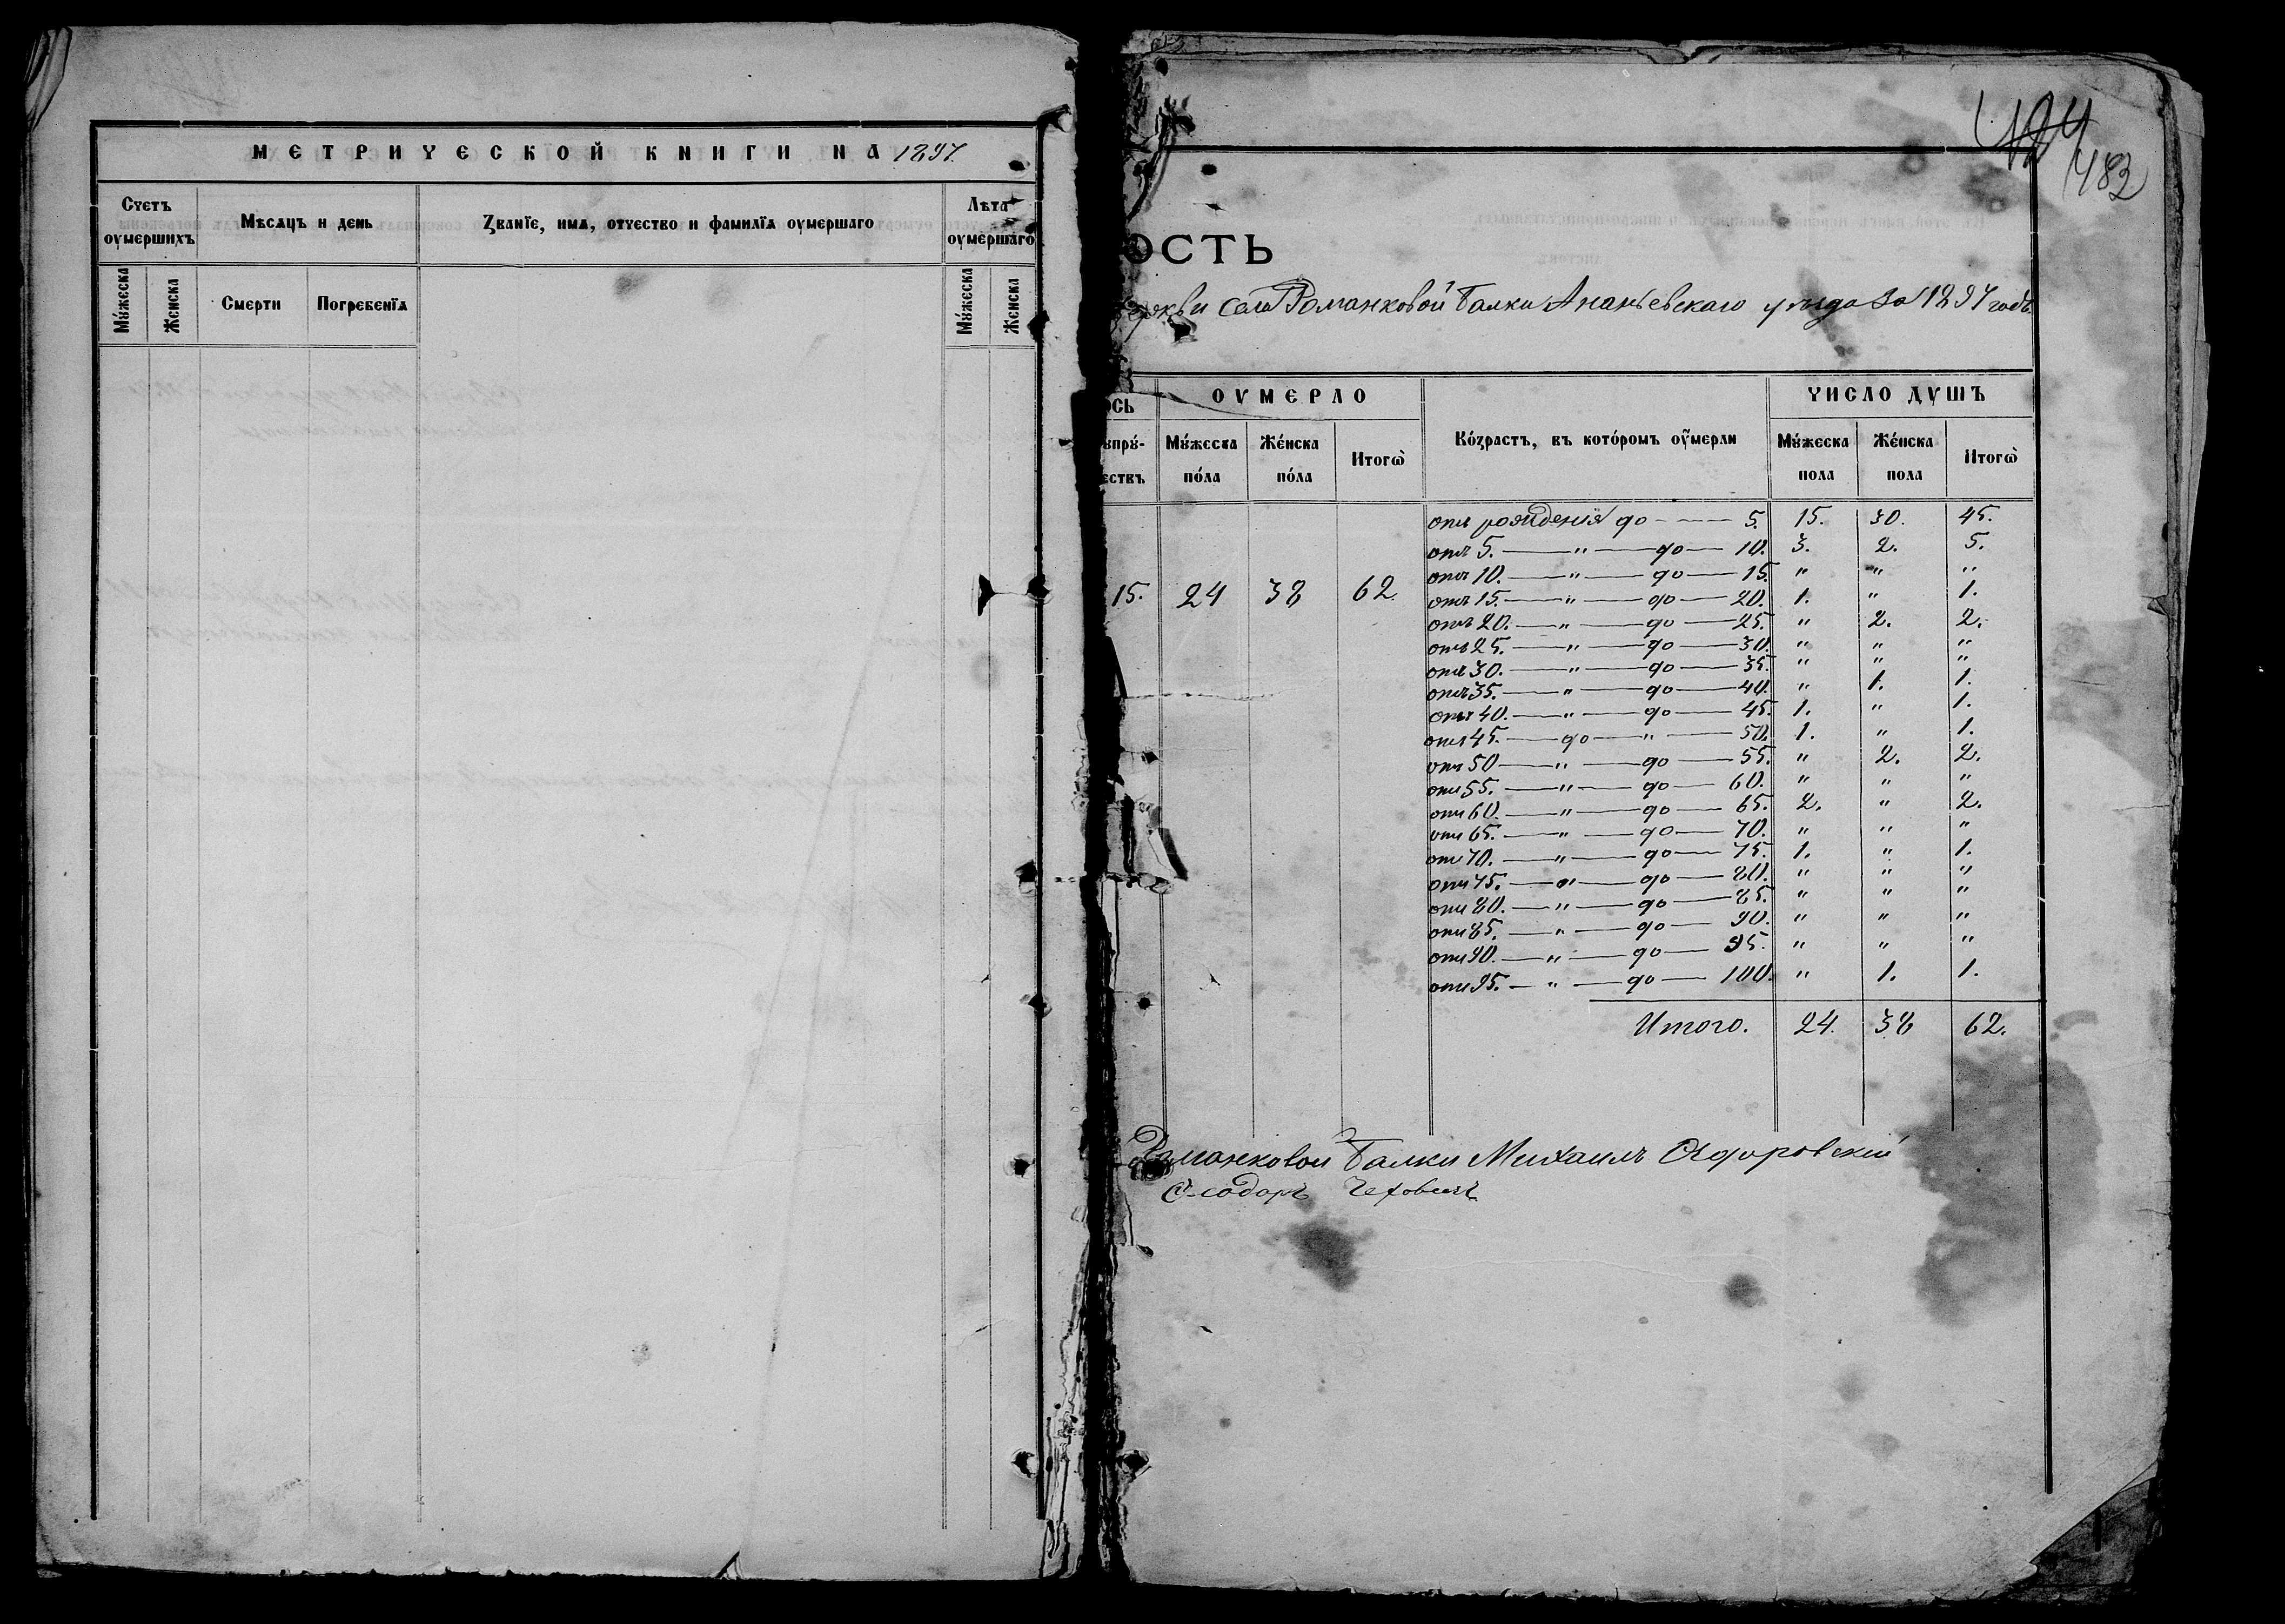 МЕТРИЧЕСКОЙ КНИГИ НА 1897.
Счетъ оумершихъ
Мѣсяцъ и день
Званїе, имя, отчество и фамилїя оумершаго
Лѣта оумершаго
Мꙋжеска
Женска
Смерти
Погребенїя
Мꙋжеска
Женска
483
ОСТЬ
церкви села Романковой Балки Ананьевскаго уѣзда за 1897 годъ.
ОСЬ
ОУМЕРЛО
Во́зрастъ, въ кото́ромъ оу҆мерли
ЧИСЛО ДУШЪ
Мꙋ́жеска по́ла
Же́нска по́ла
Итогѡ̀
Мꙋ́жеска пола
Же́нска пола
Итогѡ̀
15. 24 38 62.
отъ рожденія до - - - 5. 15. 30. 45.
отъ 5. — " — до — 10. 3. 2. 5.
отъ 10. — " — до — 15. " " "
отъ 15. — " — до — 20. 1. " 1.
отъ 20. — " — до — 25. " 2. 2.
отъ 25. — " — до — 30. " " "
отъ 30. — " — до — 35. " " "
отъ 35. — " — до — 40. " 1. 1.
отъ 40. — " — до — 45. 1. " 1.
отъ 45. — до — " — 50. 1. " 1.
отъ 50 — " — до — 55. " 2. 2.
отъ 55. — " — до — 60. " " "
отъ 60. — " — до — 65. 2. " 2.
отъ 65. — " — до — 70. " " "
отъ 70. — " — до — 75. 1. " 1.
отъ 75. — " — до — 80. " " "
отъ 80. — " — до — 85. " " "
отъ 85. — " — до — 90. " " "
отъ 90. — " — до — 95. " " "
отъ 95. — " — до — 100. " 1. 1.
Итого. 24. 38 62.
Романковой Балки Михаилъ